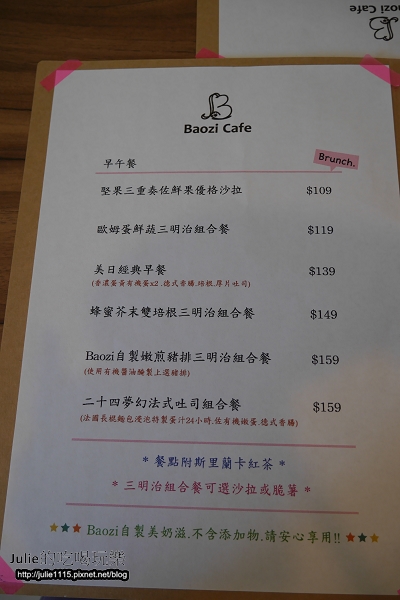 Baozi Cafe
Baozi Cafe
早午餐
Brunch.
堅果三重奏佐鮮果優格沙拉 $109
歐姆蛋鮮蔬三明治組合餐 $119
美日經典早餐 $139
(香濃蛋黃有機蛋x2.德式香腸.培根.厚片吐司)
蜂蜜芥末雙培根三明治組合餐 $149
Baozi自製嫩煎豬排三明治組合餐 $159
(使用有機醬油醃製上選豬排)
二十四夢幻法式吐司組合餐 $159
(法國長棍麵包浸泡特製蛋汁24小時.佐有機嫩蛋.德式香腸)
* 餐點附斯里蘭卡紅茶 *
* 三明治組合餐可選沙拉或脆薯 *
★★★ Baozi自製美奶滋.不含添加物.請安心享用!! ★★★
Julie的吃喝玩樂
http://julie1115.pixnet.net/blog